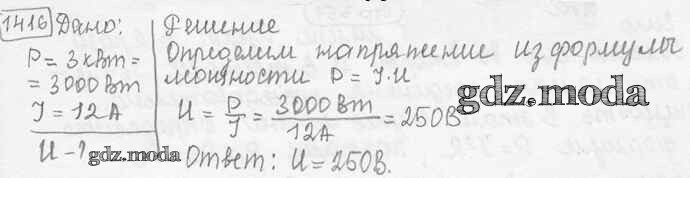 1416 Дано:
P = 3 кВт =
= 3000 Вт
I = 12 А
U - ?
gdz.moda
Решение
Определим напряжение из формулы
мощности P = I·U
U = P/I = 3000 Вт/12 А = 250В
gdz.moda
Ответ: U = 250В.